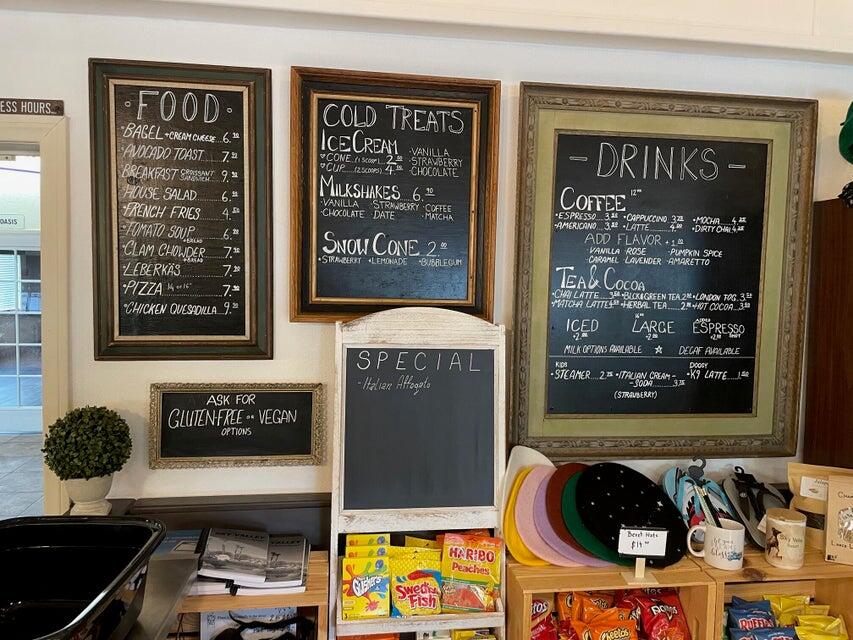 ESS HOURS...
OASIS
·FOOD·
·BAGEL +CREAM CHEESE...6.
AVOCADO TOAST...7.
BREAKFAST CROISSANT SANDWICH...9.
·HOUSE SALAD...6.
·FRENCH FRIES...4.
·TOMATO SOUP +BREAD...6.
·CLAM CHOWDER +BREAD...7.
·LEBERKÄS...7.
·PIZZA...7.
·CHICKEN QUESADILLA...9.
COLD TREATS
ICE CREAM
CONE (1 SCOOP) 2
CUP (2 SCOOPS) 4
·VANILLA
·STRAWBERRY
·CHOCOLATE
MILKSHAKES 6.
·VANILLA ·STRAWBERRY ·COFFEE
·CHOCOLATE ·DATE ·MATCHA
SNOW CONE 2.00
·STRAWBERRY ·LEMONADE ·BUBBLEGUM
- DRINKS -
COFFEE 12oz
·ESPRESSO...3. ·CAPPUCCINO 3. ·MOCHA...4.
·AMERICANO...3. ·LATTE...4. ·DIRTY CHAI 4.
ADD FLAVOR + 1.
VANILLA ROSE PUMPKIN SPICE
CARAMEL LAVENDER AMARETTO
TEA & COCOA
·CHAI LATTE...3. ·BLCK&GREEN TEA.2. ·LONDON FOG.3.
·MATCHA LATTE 4. ·HERBAL TEA...2. ·HOT COCOA...3.
ICED LARGE ESPRESSO
MILK OPTIONS AVAILABLE ☆ DECAF AVAILABLE
KIDS
·STEAMER...2. ·ITALIAN CREAM SODA...3.
(STRAWBERRY)
DOGGY
·K9 LATTE...1.
ASK FOR
GLUTEN-FREE OR VEGAN
OPTIONS
SPECIAL
-Italian Affogato
Gushers
Swedish Fish
HARIBO
Peaches
Beret Hats
$14
VALLEY
Cheetos
RUFFLES